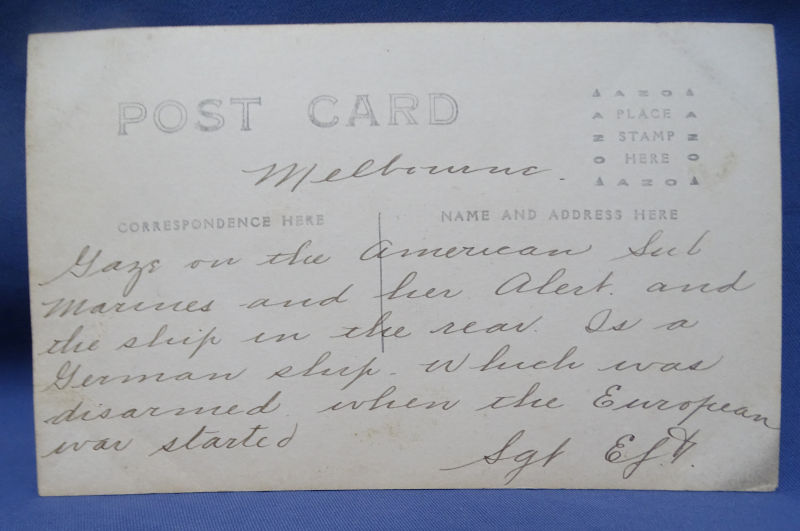 POST CARD
AZO
PLACE
STAMP
HERE
AZO
Melbourne.
CORRESPONDENCE HERE
NAME AND ADDRESS HERE
Gaze on the American Sub
Marines and her Alert. and
the ship in the rear. Is a
German ship. Which was
disarmed. when the European
war started
Sgt